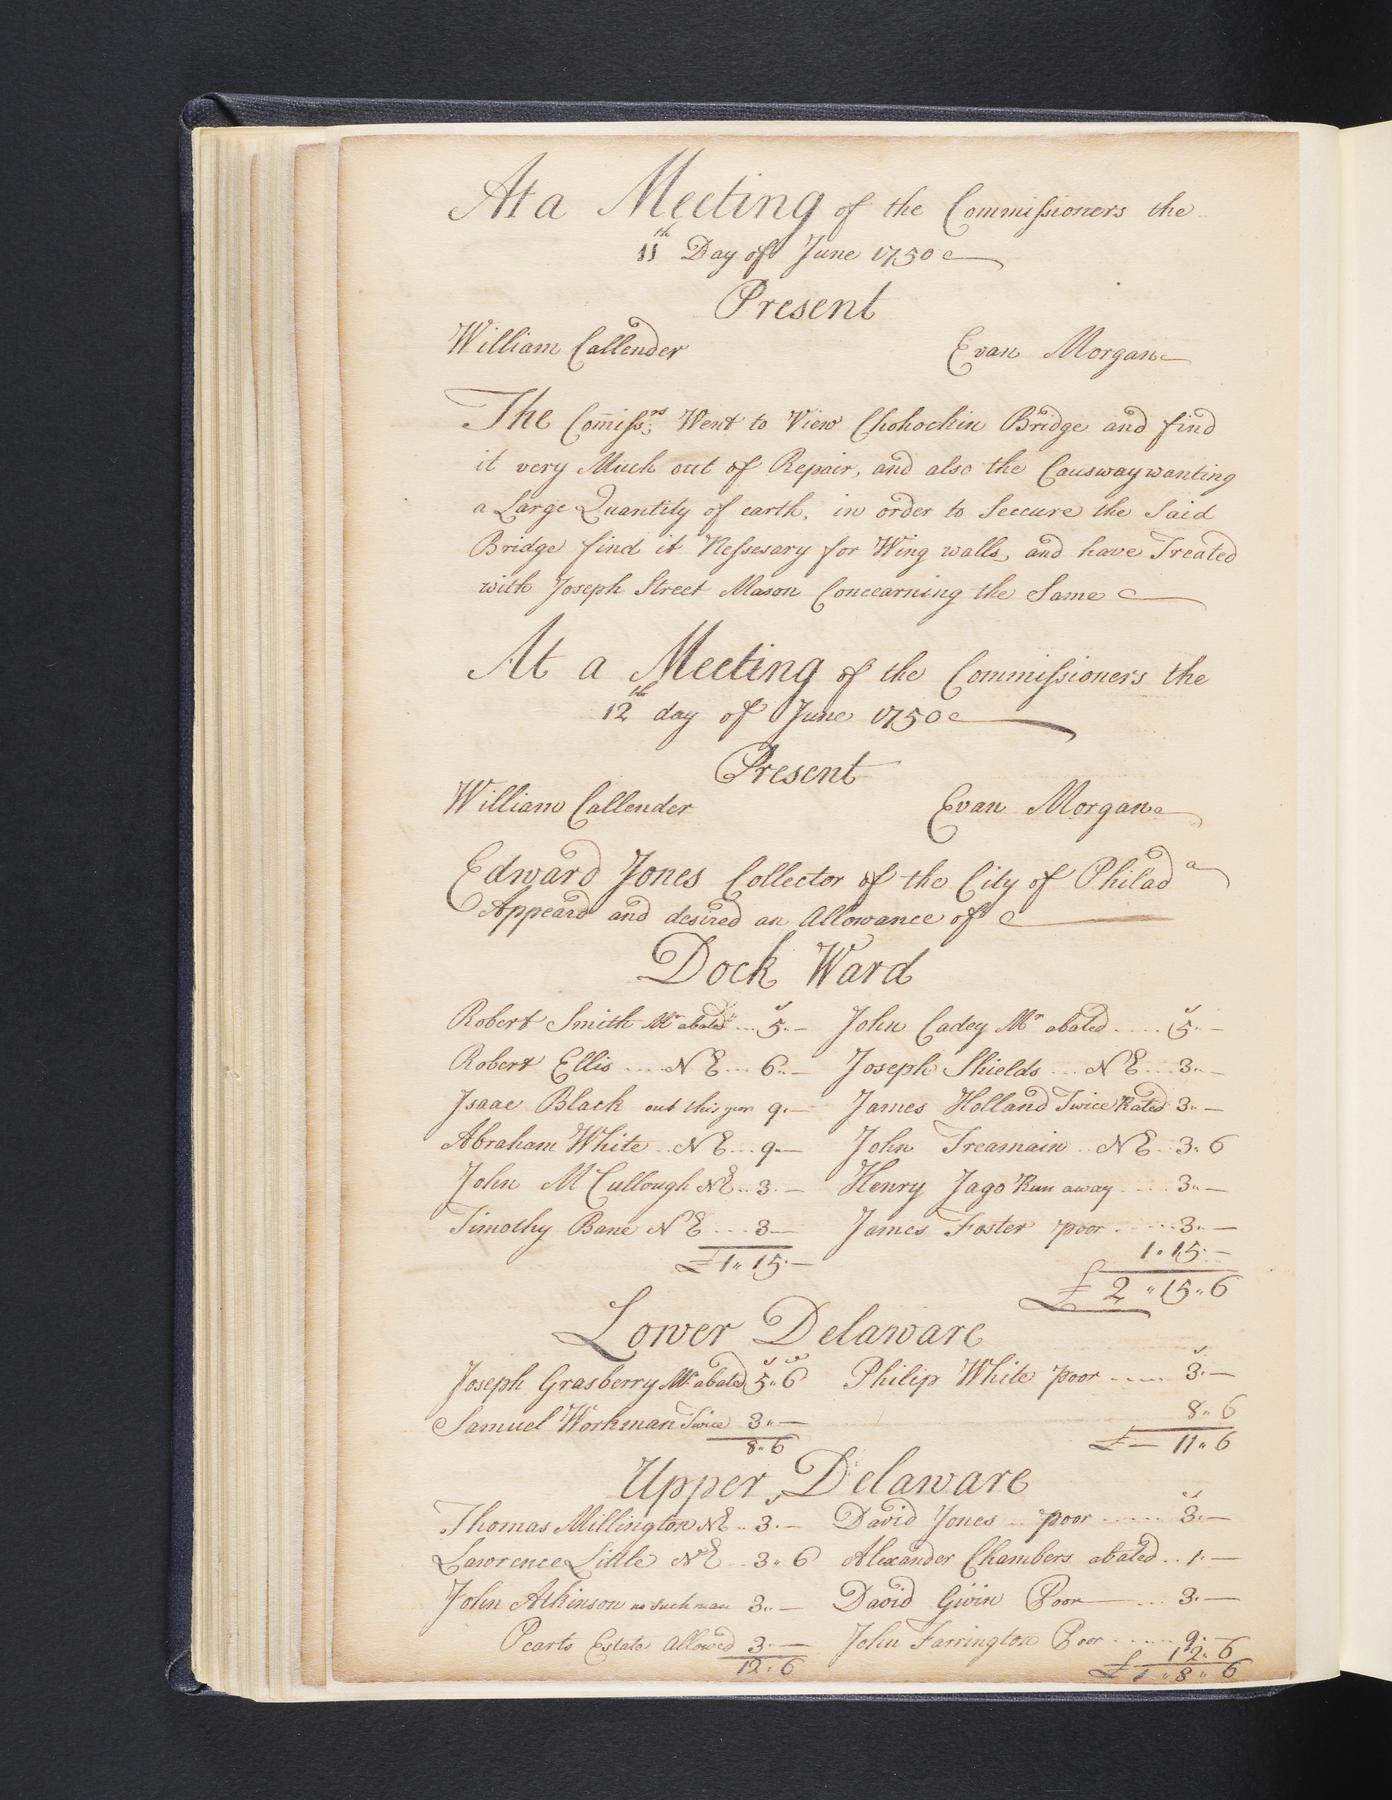 At a Meeting of the Commissioners the
11th Day of June 1750
Present
William Callender Evan Morgan
The Comissrs Went to View Chohockin Bridge and find
it very Much out of Repair, and also the Causway wanting
a Large Quantity of earth, in order to Seecure the Said
Bridge find it Nessesary for Wing walls, and have Treated
with Joseph Street Mason Concearning the Same
At a Meeting of the Commissioners the
12th day of June 1750
Present
William Callender Evan Morgan
Edward Jones Collector of the City of Philada
Appeard and desired an Allowance of
Dock Ward
Robert Smith Mr abated ... 5..— John Cadey Mr abated ..... 5..—
Robert Ellis ..... N E ... 6..— Joseph Shields ... N E ... 3..—
Isaac Black out this year 9.— James Holland Twice Rated 3..—
Abraham White .. N E ... 9..— John Treamain .. N E .. 3.. 6
John McCullough N E .. 3..— Henry Jago Run away ..... 3..—
Timothy Bane N E .... 3— James Foster poor ...... 3..—
£1.. 15.— 1.. 15.—
£ 2 .. 15.. 6
Lower Delaware
Joseph Grasberry Mr abated 5.. 6 Philip White poor ..... 3.—
Samuel Workman Twice 3..— 8.. 6
8.. 6 £ — 11.. 6
Upper Delaware
Thomas Millington N E .. 3.— David Jones ... poor ...... 3.—
Lawrence Little N E ... 3.. 6 Alexander Chambers abated .. 1.—
John Atkinson no such man 3..— David Gwin Poor — ... 3.—
Pearts Estate allowed 3.— John Farrington Poor ...... 9.—
12.. 6 12.. 6
£ 1 .. 8 .. 6